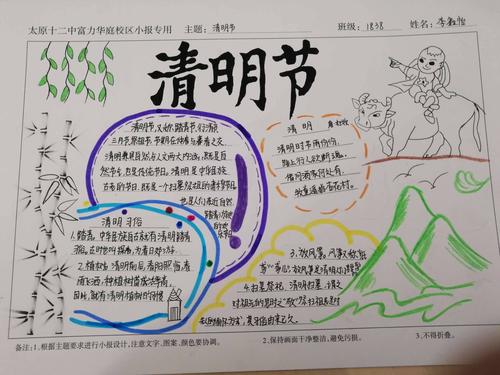 太原十二中富力华庭校区小报专用 主题：清明节 班级：1838 姓名：李
清明节
清明节，又称踏青节、行清节
三月节、祭祖节，节期在仲春与暮春之交。
清明兼具自然与人文两大内涵，既是自
然节气，也是传统节日。清明是中华民族
古老的节日，既是一个扫墓祭祖的肃穆节日，
也是人们亲近自然
踏青
清明
清明时节雨纷纷，
路上行人欲断魂。
借问酒家何处有，
牧童遥指杏花村。
清明习俗
1.踏青，中华民族自古就有清明踏青
2.植树：清明前后，春阳照临，春
雨飞洒，种植树苗成活率高，
因此，就有清明植树的习惯
3.放风筝。风筝又称
放风筝是清明
4.扫墓祭祖。清明扫墓，谓之
对祖先的思时之敬
备注：1.根据主题要求进行小报设计，注意文字、图案、颜色要协调。 2.保持画面干净整洁，避免污损。 3.不得折叠。